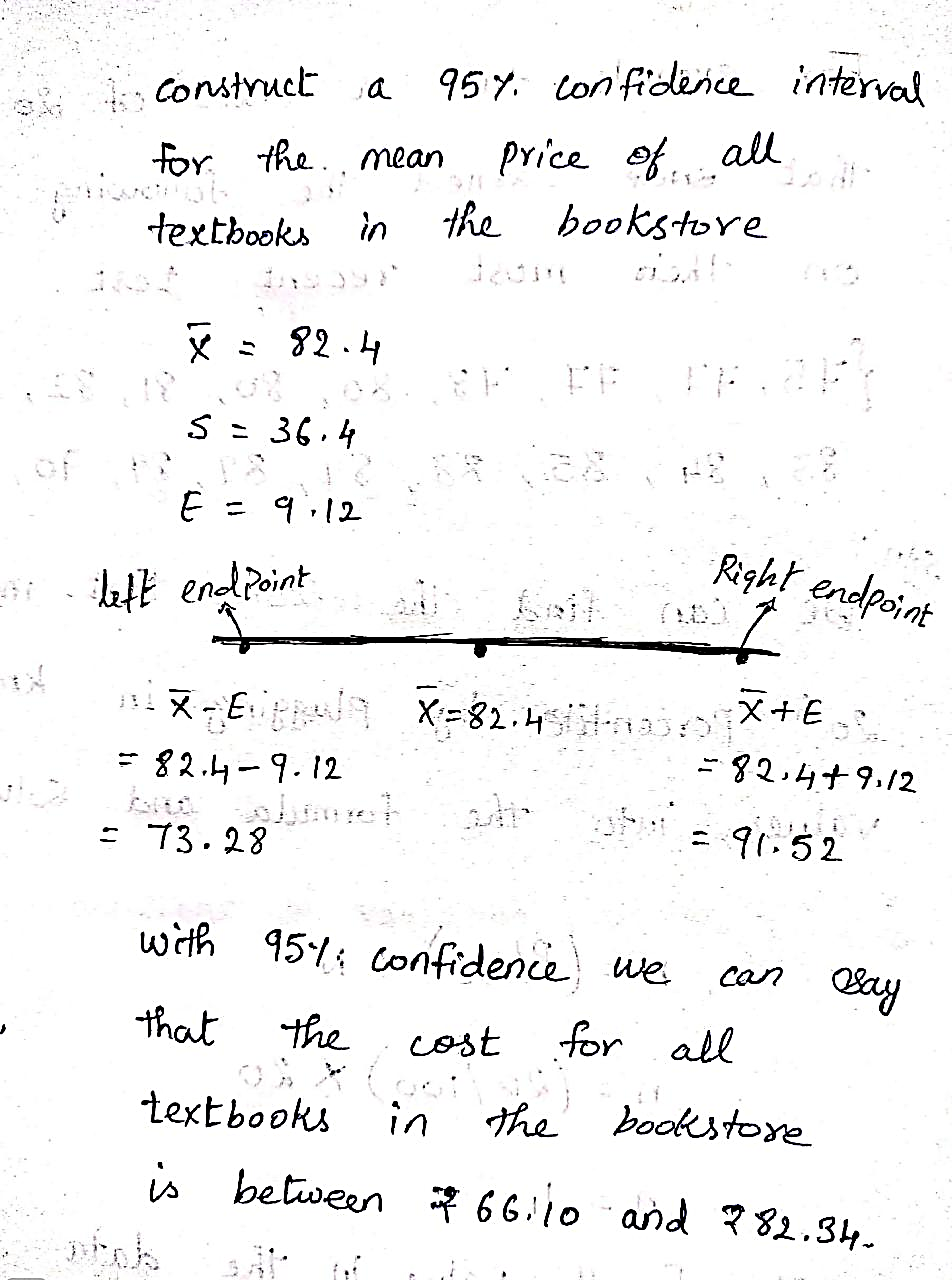 construct a 95%. confidence interval
for the mean price of all
textbooks in the bookstore
x̄ = 82.4
S = 36.4
E = 9.12
left endpoint Right endpoint
x̄ - E x̄ = 82.4 x̄ + E
= 82.4 - 9.12 = 82.4 + 9.12
= 73.28 = 91.52
with 95% confidence we can say
that the cost for all
textbooks in the bookstore
is between ₹ 66.10 and ₹ 82.34.